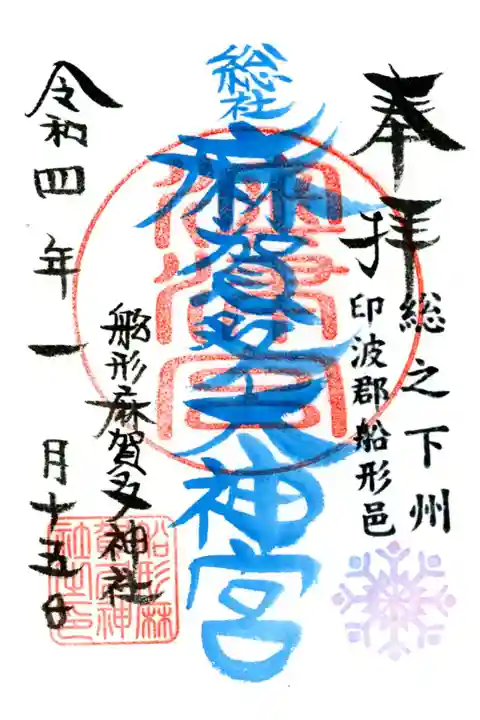 奉拝
総之下州
印波郡船形邑
総社
麻賀多大神宮
船形麻賀多神社
令和四年一月十五日